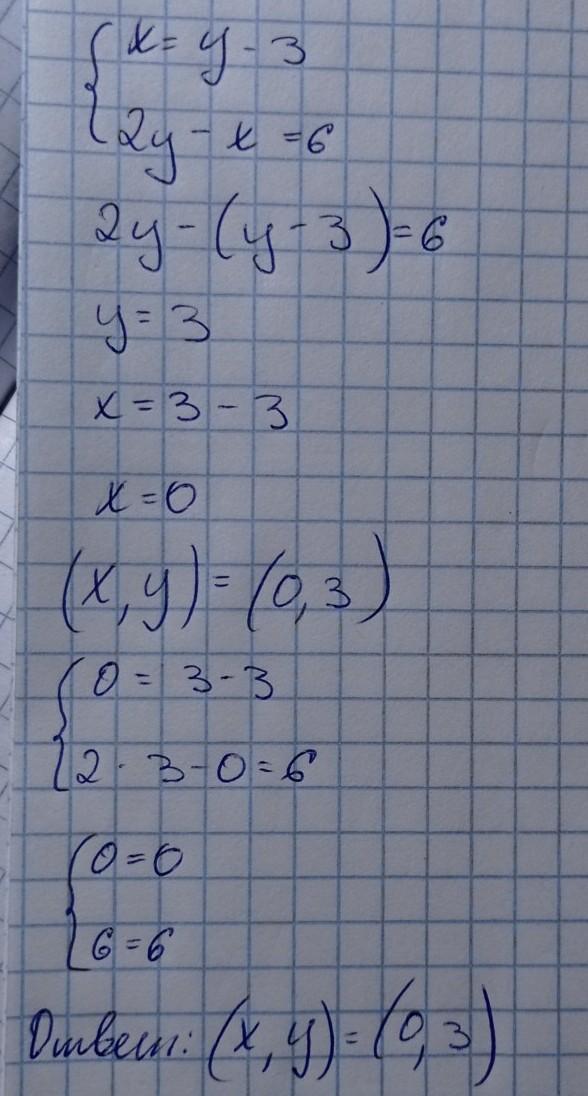 { x = y - 3
2y - x = 6
2y - (y - 3) = 6
y = 3
x = 3 - 3
x = 0
(x, y) = (0, 3)
{ 0 = 3 - 3
2 · 3 - 0 = 6
{ 0 = 0
6 = 6
Ответ: (x, y) = (0, 3)